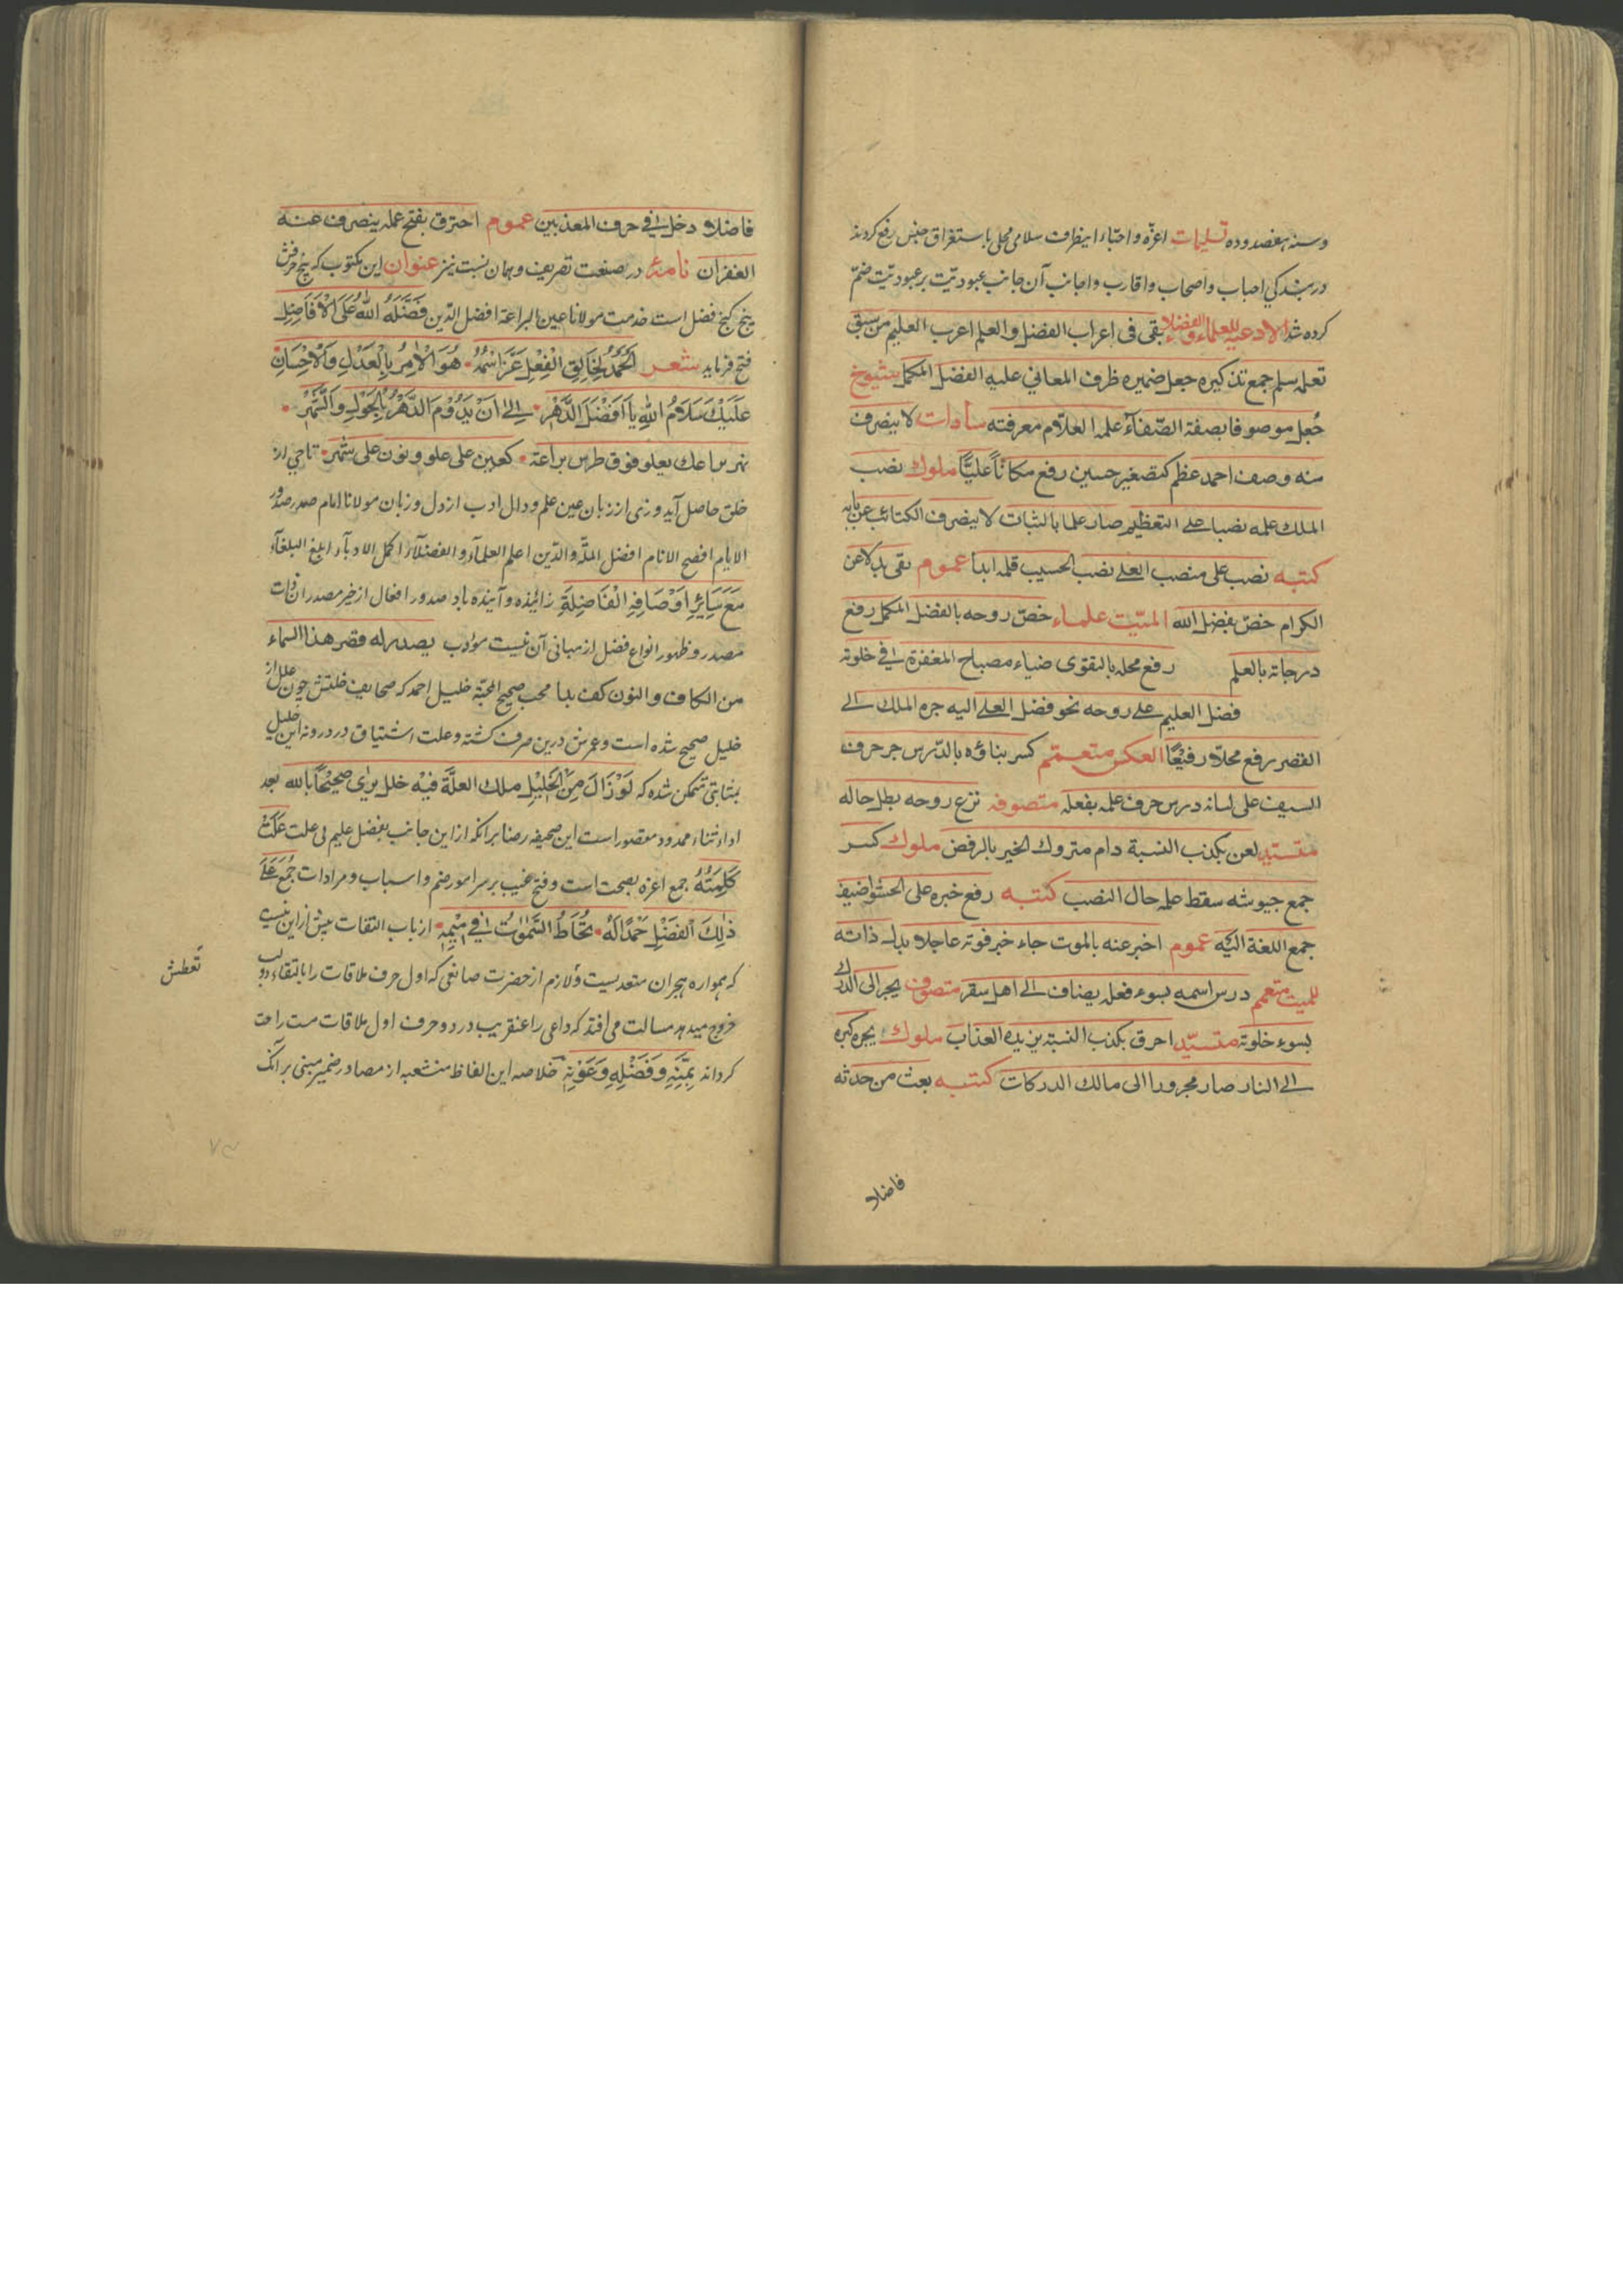 وسنه هفصد و ده تسلیمات اعزّه و احبّاء اینطرف سلامی محلی باستغراق جنس رفع کردند
در بندکی احباب و اصحاب و اقارب و اجانب آن جانب عبودیّت بر عبودیّت ضمّ
کرده شد الادعیه للعلماء والفضلاء بقی فی اعراب الفضل والعلم اعرب العلیم من سبق
تعلمه سلم جمع تذکیره جعل ضمیره ظرف المعانی علیه الفضل المکمل شیوخ
جُعل موصوفا بصفة الصّفاء علمه العلاّم معرفته سادات لا ینصرف
منه وصف احمد عظم کتصغیر حسین رفع مکاناً علیّاً ملوك نصب
الملك علمه نصبا علی التعظیم صار علما بالثبات لا ینصرف الکتائب عن بابه
کتبه نصب علی منصب العلی نصب الحسیب قلمه ابدا عموم بقی بدلا عن
الکرام خصّ بفضل الله المیّت علماء خصّ روحه بالفضل المکمل رفع
درجاته بالعلم رفع محله بالتقوی ضیاء مصباح المغفرة فی خلوته
فضل العلیم علی روحه نحو فضل العلی الیه جره الملك الی
القصر رفع محلاّ رفیعًا العکس متعمّم کسر بناؤه بالدّرس جر حرف
السیف علی لسانه درس حرف علمه بفعله متصوفه نزع روحه بطل حاله
متسیّد لعن بکذب النسبة دام متروك الخیر بالرفض ملوك کسر
جمع جیوشه سقط علمه حال النصب کتبه رفع خبره علی الحشو اضیف
جمع اللغة الیه عموم اخبر عنه بالموت جاء خبر فوته عاجلا بدل ذاته
للمیت متعمم درس اسمه بسوء فعله یضاف الی اهل سقر متصوف یجر الی الدرك
بسوء خلوته متسیّد احرق بکذب النسبة یزیده العذاب ملوك یجره کبره
الی النار صار مجرورا الی مالك الدرکات کتبه بعث من حدثه
فاضلا
فاضلا دخل فی حرف المعذبین عموم احترق بفتح عمله ینصرف عنه
الغفران نامهٔ در صنعت تصریف و همان نسبت نیز عنوان این مکتوب که پنج حرفش
پنج کنج فضل است خدمت مولانا عین البراعة افضل الدّین فَضَّلَهُ اللّٰهُ عَلَی الْاَفَاضِلِ
فتح فرماید شعر اَلْحَمْدُ لِخَالِقِ الْفِعْلِ عَزَّ اسْمُهُ هُوَ الْاٰمِرُ بِالْعَدْلِ وَالْاِحْسَانِ
عَلَیْكَ سَلَامُ اللّٰهِ یَا اَفْضَلَ الدَّهْرِ اِلیٰ اَنْ یَدُوْمَ الدَّهْرُ بِالْحَوْلِ وَالشَّهْرِ
یراعك یعلو فوق طرس براعة کعین علی علو و نون علی نهر
خلق حاصل آید و زی از زبان عین علم و دال ادب از دل و زبان مولانا امام صدر صدور
الایام افصح الانام افضل الملّة والدّین اعلم العلماء و الفضلاء اکمل الادباء ابلغ البلغاء
مَعَ سَائِرِ اَوْصَافِهِ الْفَاضِلَةِ زائیذه و آینده باد صدور افعال از خیر مصدر آن ذات
مصدر و ظهور انواع فضل از مبانی آن نیست مؤدب یصدر له قصر هذا السماء
من الکاف والنون کف بدا محب صحیح المحبّة خلیل احمد که صحایف خلتش چون علل از
خلیل صحیح شده است و عرش درین صرف کشته و علت اشتیاق در درونه این خلیل
بمثابتی متمکن شده که لَوْ زَالَ مِنَ الْخَلِیْلِ ملك العلّة فیْه خلل یرٰی صحیْحًا بالله بعد
اداء ثناء ممدود مقصور است این صحیفه رضا برانکه از این جانب بفضل علیم بی علت عَلَتْ
کَلِمَتُهُ جمع اعزه بصحت است و فتح غیب بر سر امور ضم و اسباب و مرادات جُمِعَ عَلیٰ
ذٰلِكَ الْفَضْلِ حَمْدًا لَهُ تُحَاطُ السَّمٰوَاتُ فِی مِیْمِهِ از باب التقات بیش از این نیست
که همواره هجران متعدیست و لازم از حضرت صانعی که اول حرف ملاقات را بالتقاء دو لب
خروج میدهد مسالت می افتد که داعی را عنقریب در دو حرف اول ملاقات مست راحت
کرداند بِمَنِّهِ وَفَضْلِهِ وَعَوْنِهِ خلاصه این الفاظ منشعبه از مصادر ضمیر مبنی بر آنک
تعطش